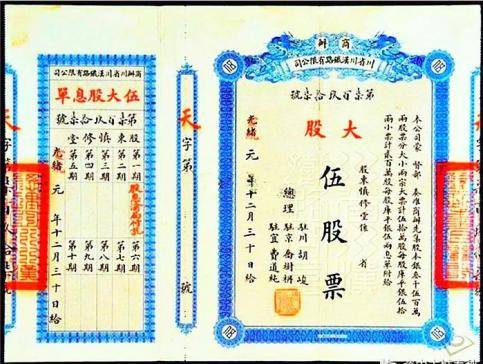 商辦
川省川漢鐵路有限公司
第柒百玖拾柒號
大股
本公司蒙 督部 奏准商辦先集股本銀叁千伍百萬
兩股票分大小兩宗大票計伍拾萬股每股庫平銀伍拾
兩小票計貳百萬股每股庫平銀伍兩息單附給
股東慎修堂係 省
伍股票
總理
駐川胡峻
駐京喬樹枬
駐宜費道純
光緒元年十二月三十日給
天字第 號
商辦川省川漢鐵路有限公司
伍大股息單
第柒百玖拾柒號
股東慎修堂
第一期
第二期
第三期
第四期
第五期
第六期
第七期
第八期
第九期
第十期
光緒元年十二月三十日給
天字第